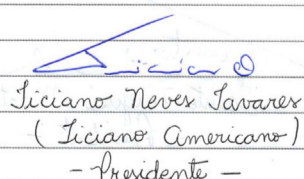 Ticiano Neves Tavares
(Ticiano Americano)
- Presidente -